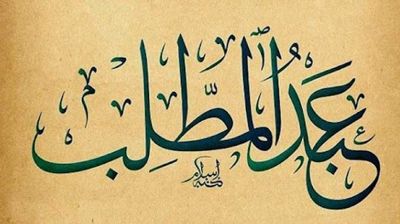 عَبْدُ الْمُطَّلِب